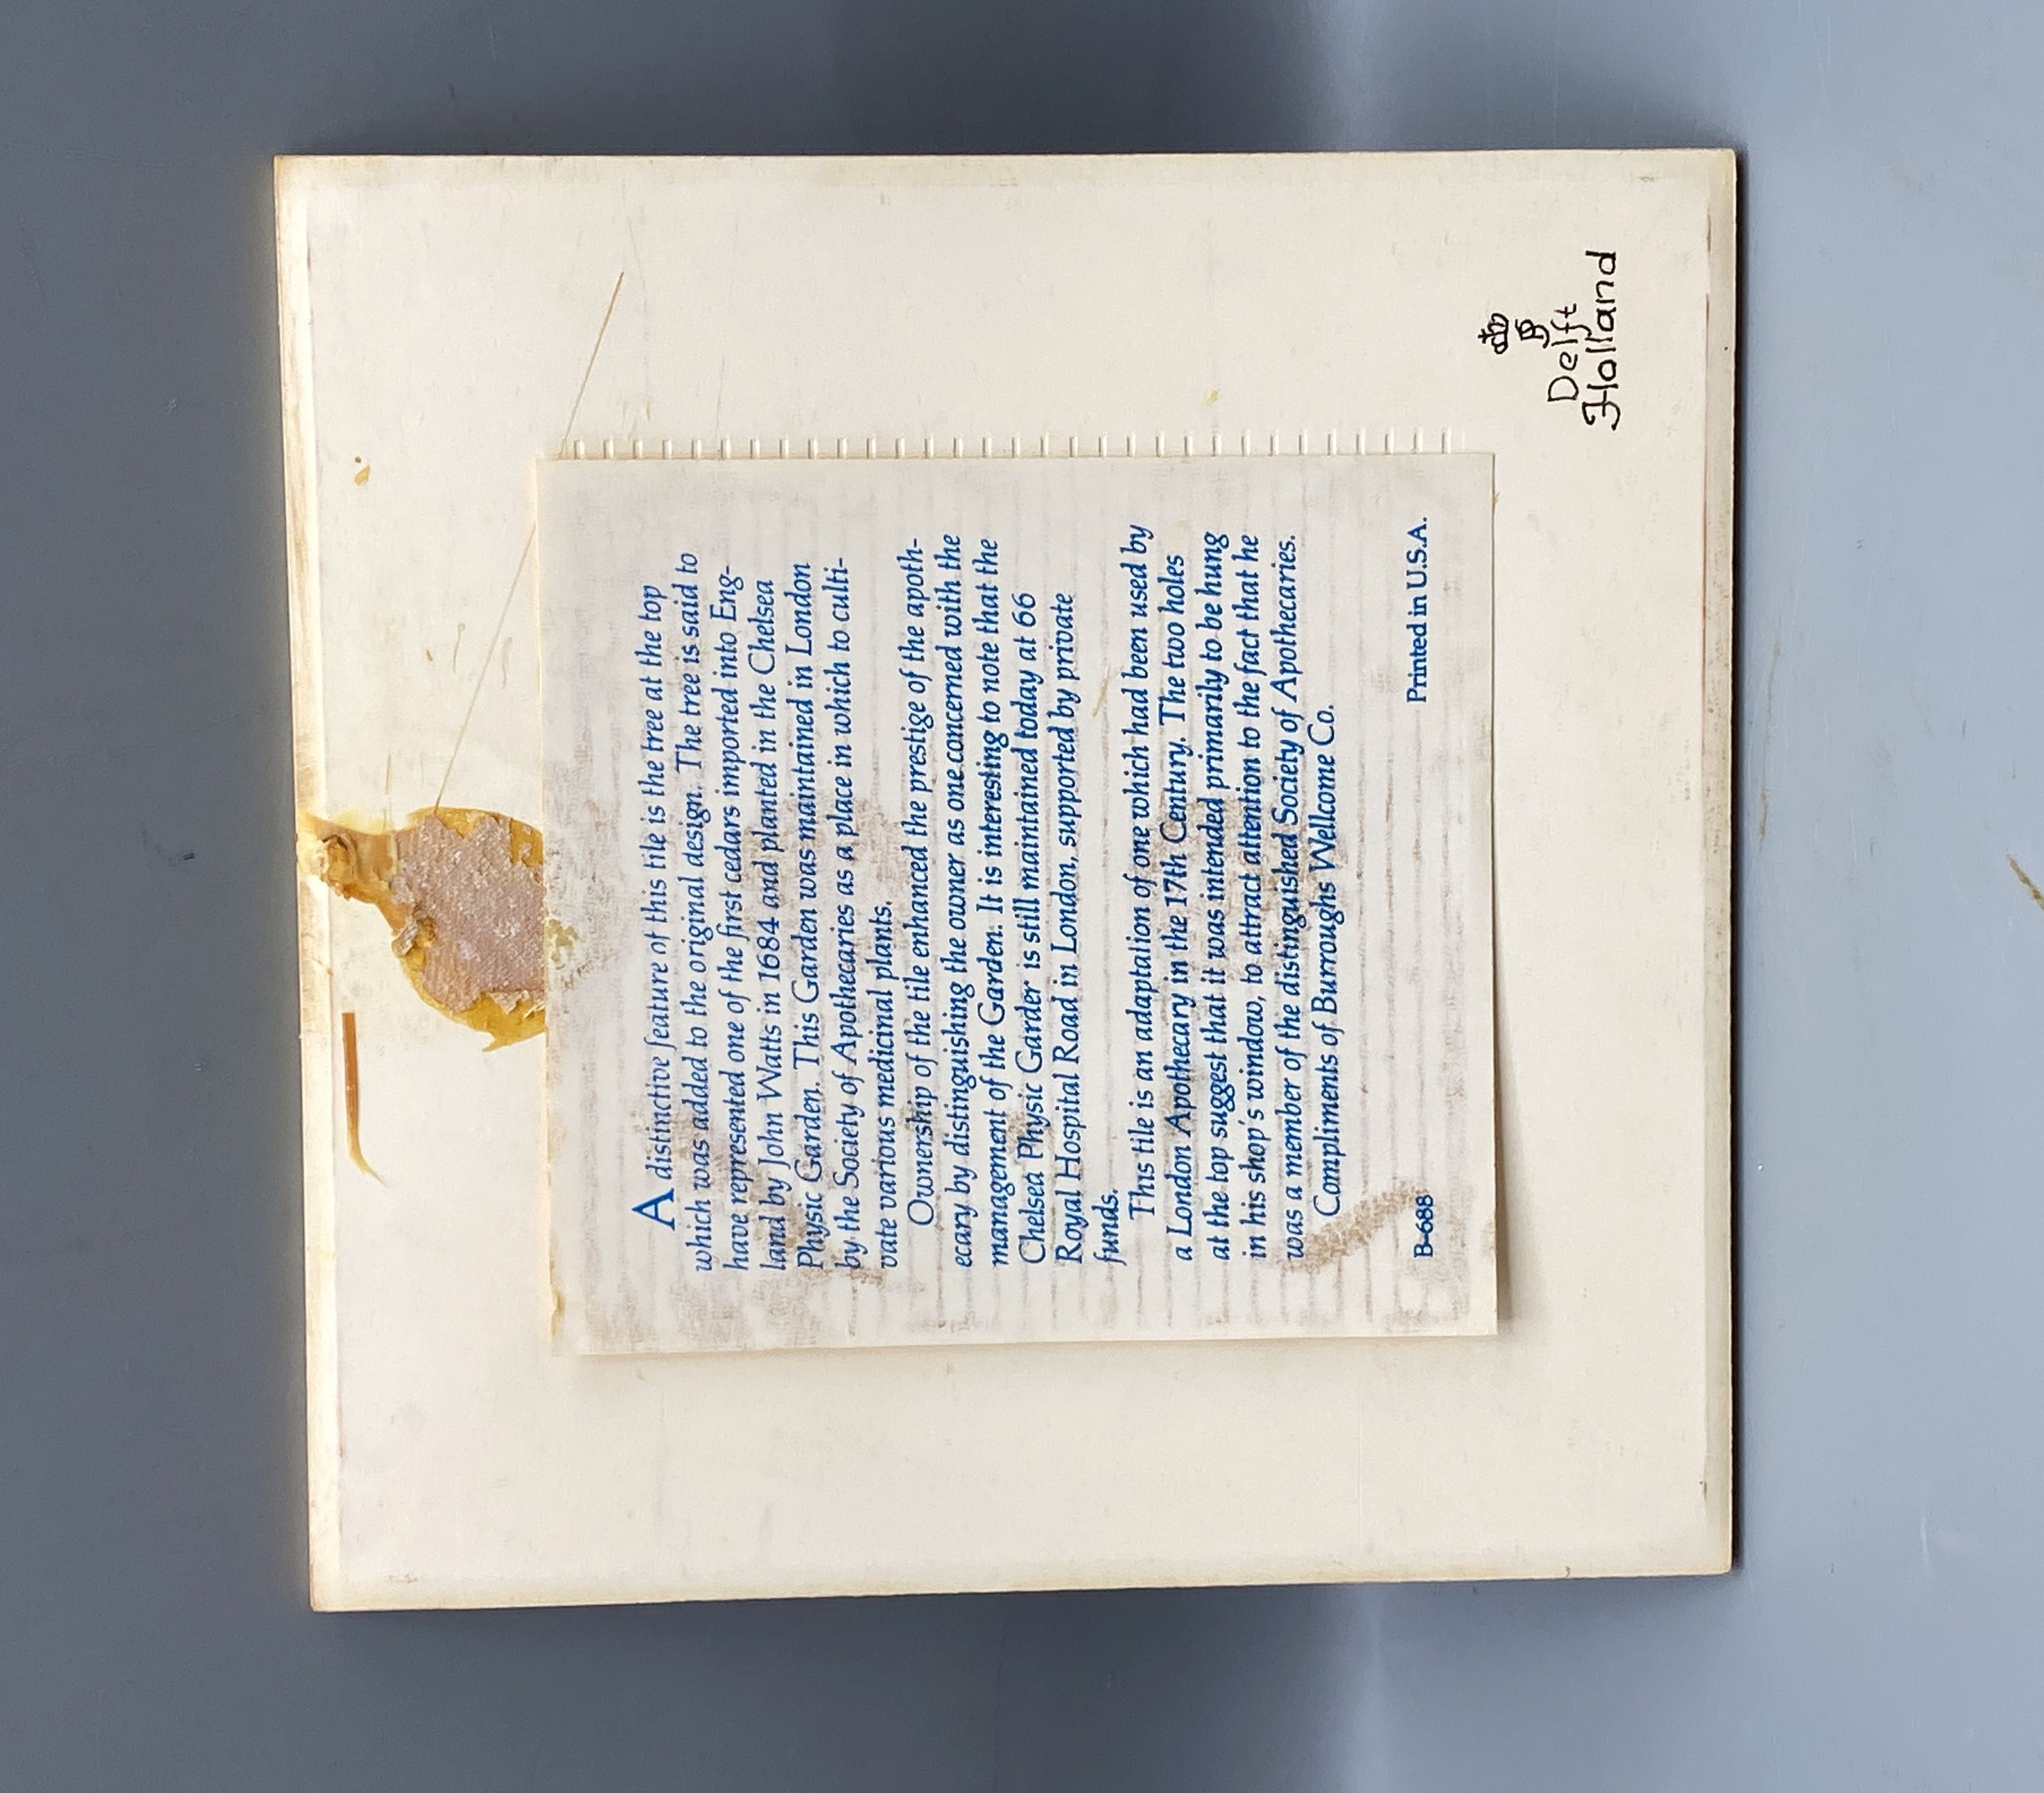 A distinctive feature of this tile is the tree at the top
which was added to the original design. The tree is said to
have represented one of the first cedars imported into Eng-
land by John Watts in 1684 and planted in the Chelsea
Physic Garden. This Garden was maintained in London
by the Society of Apothecaries as a place in which to culti-
vate various medicinal plants.
Ownership of the tile enhanced the prestige of the apoth-
ecary by distinguishing the owner as one concerned with the
management of the Garden. It is interesting to note that the
Chelsea Physic Garder is still maintained today at 66
Royal Hospital Road in London, supported by private
funds.
This tile is an adaptation of one which had been used by
a London Apothecary in the 17th Century. The two holes
at the top suggest that it was intended primarily to be hung
in his shop's window, to attract attention to the fact that he
was a member of the distinguished Society of Apothecaries.
Compliments of Burroughs Wellcome Co.
B-688 Printed in U.S.A.
Delft
Holland